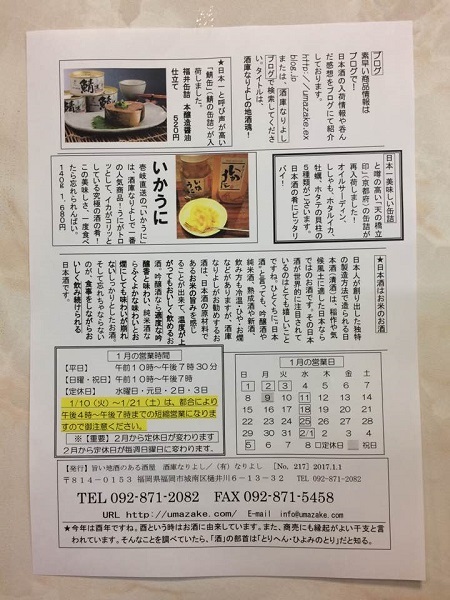 ブログ
素早い商品情報は
ブログで！
日本酒の入荷情報や呑ん
だ感想をブログにて紹介
しております。
http://umazake.ex
blog.jp
または、「酒庫なりよし
ブログ」で検索してくださ
い。タイトルは、
酒庫なりよしの地酒魂！
★日本一と呼び声が高い
「鯖缶（鯖の缶詰）」が入
荷しました。
福井缶詰 本醸造醤油
仕立て 520円
日本一美味しい缶詰
と噂の高い「天の橋立
印」（京都府）の缶詰が
再入荷しました！
オイルサーディン、
ししゃも、ホタルイカ、
牡蠣、ホタテの貝柱の
5種類がございます。
日本酒の肴にピッタリ
バイ！
いかうに
壱岐直送の「いかうに」
は、酒庫なりよしで一番
の人気商品！うにがトロ
ッとして、イカがコリッと
している究極の酒の肴！
この美味しさ、一度食べ
たら忘れられんばい。
140g 1,680円
★日本酒はお米のお酒
日本人が創り出した独特
の製造方法で造られる日
本酒（清酒）は、稲作や気
候風土に適した日本なら
ではのお酒です。その日本
酒が世界的に注目されて
いるのはとても嬉しいこと
ですね。ひとくちに“日本
酒”と言っても、吟醸酒や
純米酒、熟成酒や新酒、
飲み方も冷酒・ひや・お燗
などがありますが、酒庫
なりよしがお勧めするお
酒は、日本酒の原材料で
あるお米の旨みを感じ
ることが出来て、温度が上
がってもおいしく飲めるお
酒。吟醸酒なら適度な吟
醸香と味わい、純米酒な
らふくよかな味わいとお
燗にしても味わいが崩れ
ないしっかりとしたお酒。
そして忘れちゃならない
のが、食事をしながらお
いしく飲み続けられる
日本酒です。
1月の営業時間
【平日】 午前10時～午後7時30分
【日曜・祝日】 午前10時～午後7時
【定休日】 水曜日・元日・2日・3日
1/10（火）～1/21（土）は、都合により
午後4時～午後7時までの短縮営業になりま
すので御注意ください。
※【重要】2月から定休日が変わります
2月から定休日が毎週日曜日に変わります。
1月の営業日
日 月 火 水 木 金 土
1 2 3 4 5 6 7
8 9 10 11 12 13 14
15 16 17 18 19 20 21
22 23 24 25 26 27 28
29 30 31 2/1 2 3 4
5 6 7 8 □定休日 祝日
【発行】旨い地酒のある酒屋 酒庫なりよし／（有）なりよし 【No. 217】2017.1.1
〒814-0153 福岡県福岡市城南区樋井川6-13-32 TEL 092-871-2082
TEL 092-871-2082 FAX 092-871-5458
URL http://umazake.com/ E-mail info@umazake.com
★今年は酉年ですね。酉という時はお酒に由来しています。また、商売にも縁起がよい干支と言
われています。そんなことを調べていたら、「酒」の部首は「とりへん・ひよみのとり」だと知る。